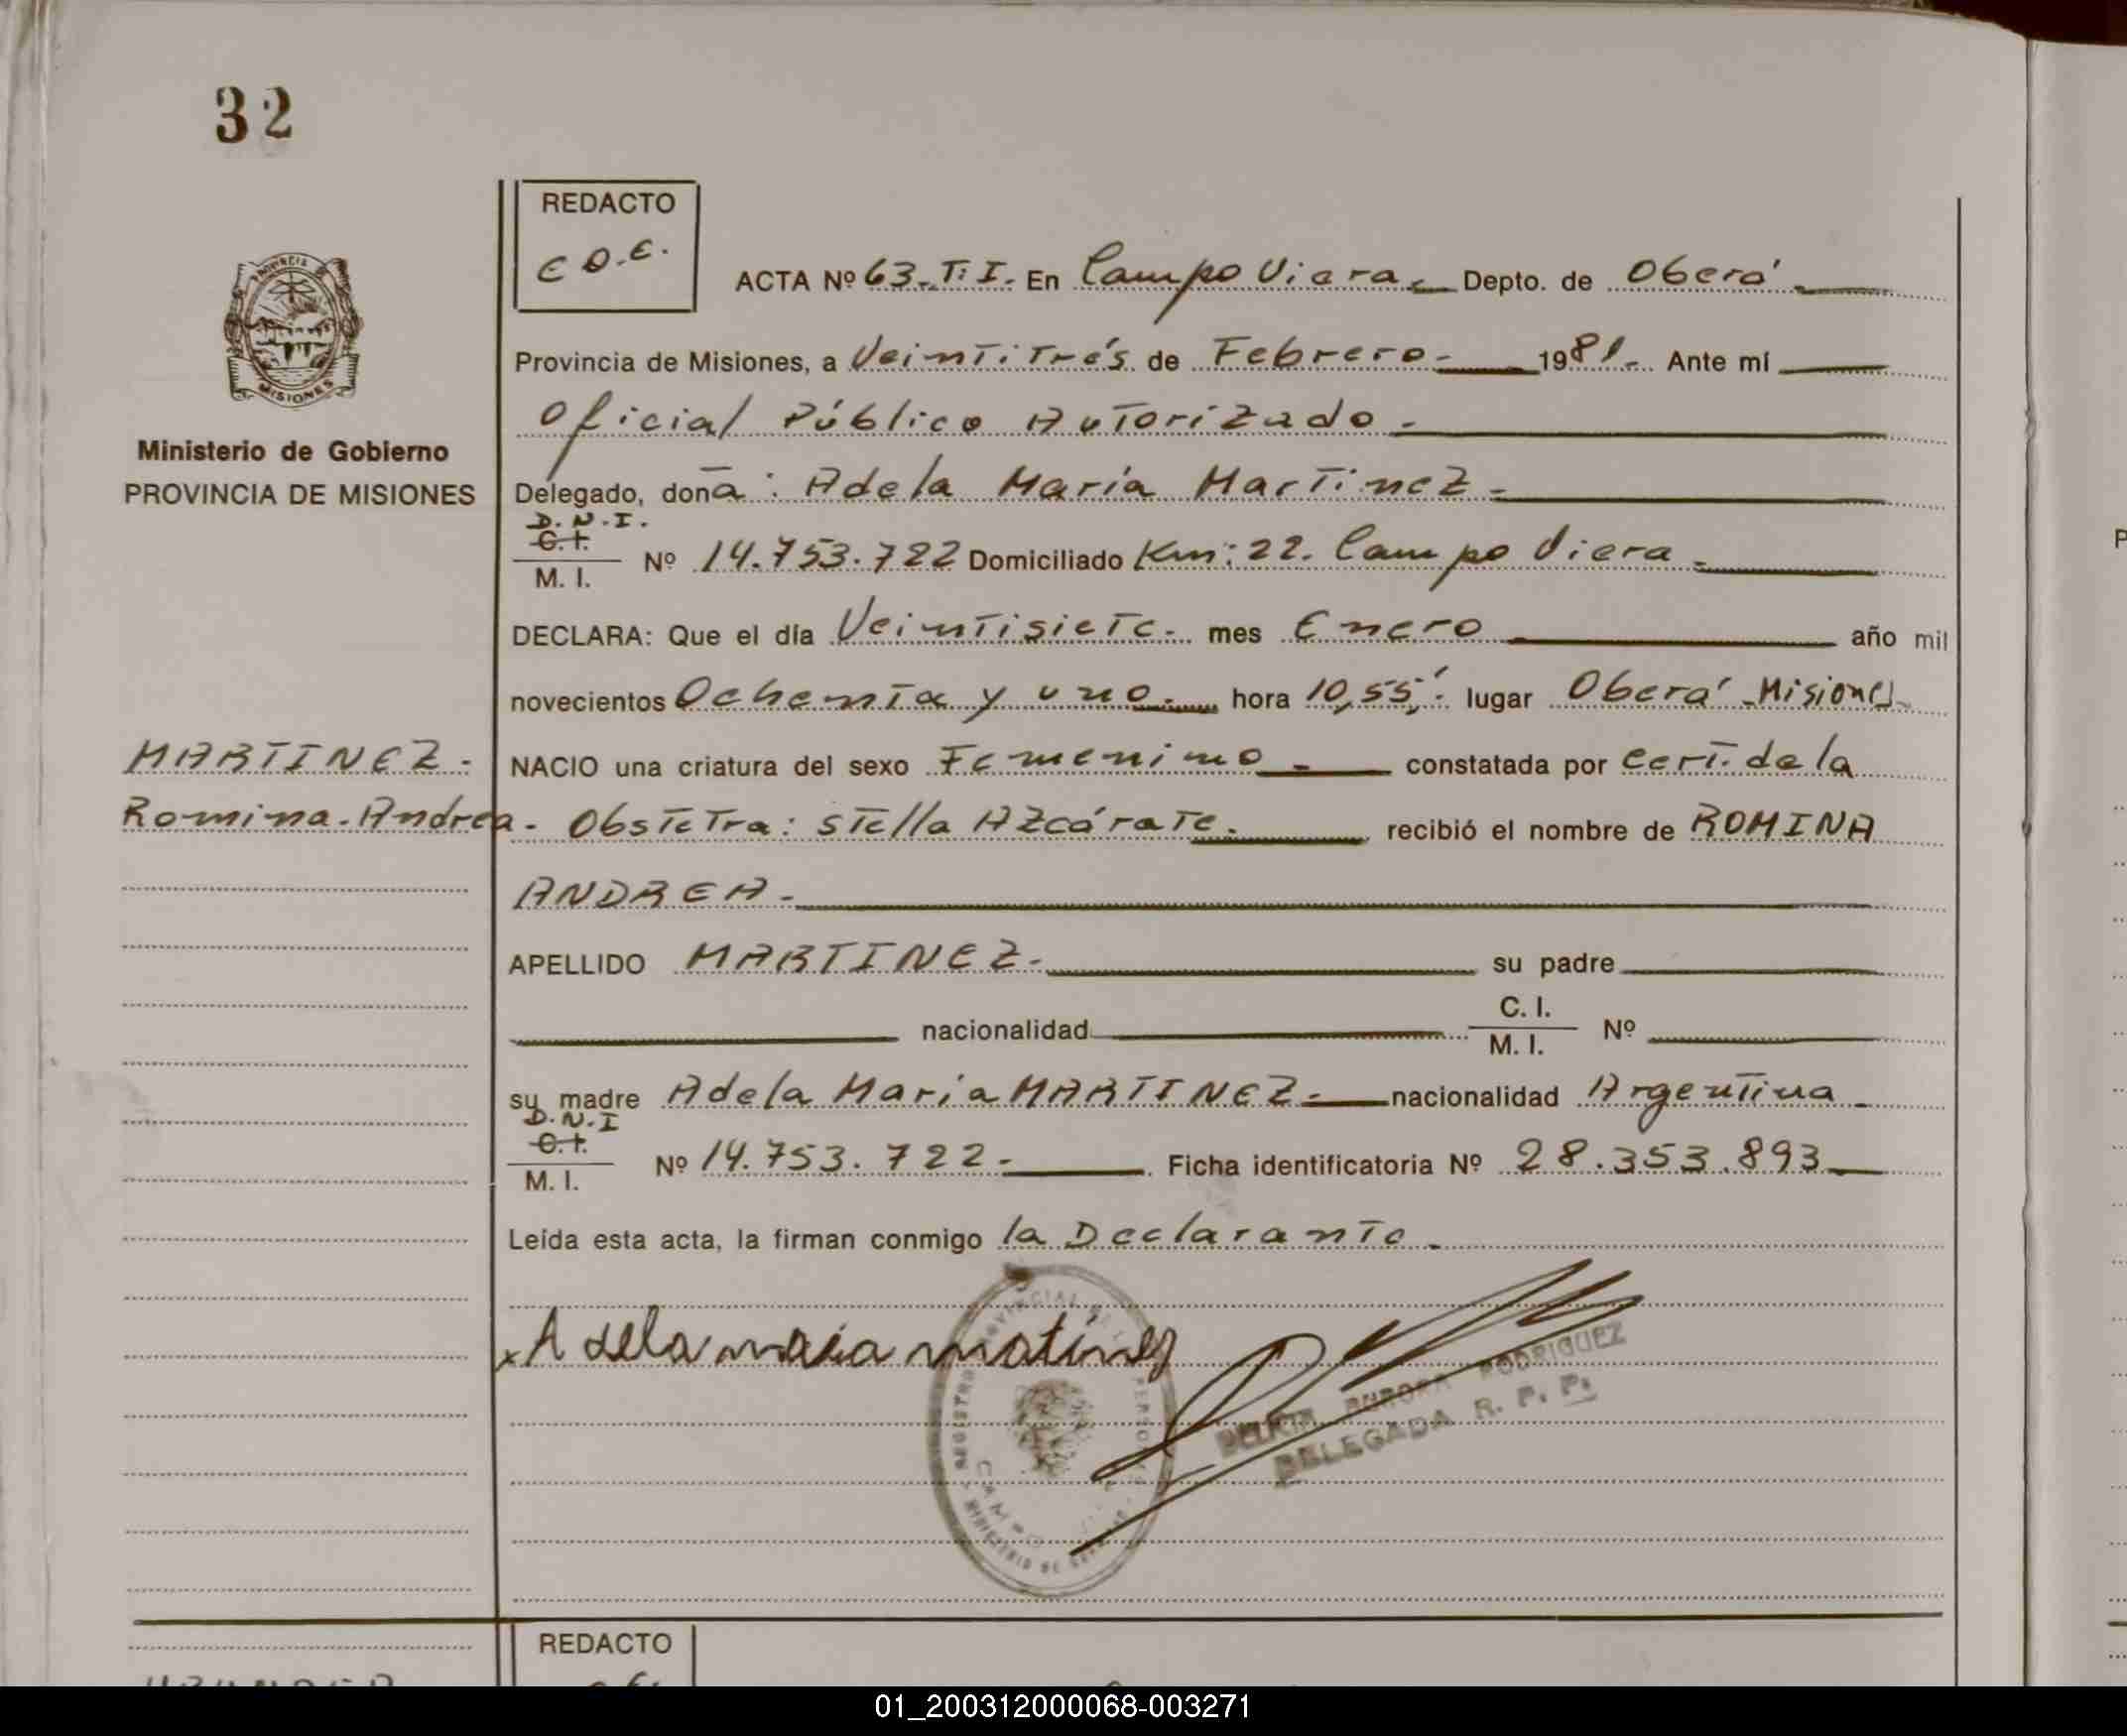 32
REDACTO
C O.E.
ACTA Nº 63-T: I. En Campo Viera - Depto. de Oberá -
PROVINCIA
MISIONES
Ministerio de Gobierno
PROVINCIA DE MISIONES
Provincia de Misiones, a Veintitrés de Febrero - 1981 - Ante mí
Oficial Público Autorizado -
Delegado, doña : Adela María Martinez -
D. N. I.
C. I.
M. I.
Nº 14.753.722 Domiciliado Km: 22. Campo Viera -
DECLARA: Que el día Veintisiete - mes Enero año mil
novecientos Ochenta y uno - hora 10,55' lugar Oberá - Misiones -
MARTINEZ -
Romina - Andrea -
NACIO una criatura del sexo Femenino - constatada por Cert. de la
Obstetra: Stella Azcárate - recibió el nombre de ROMINA
ANDREA -
APELLIDO MARTINEZ - su padre
nacionalidad C. I. Nº
M. I.
su madre Adela María MARTINEZ - nacionalidad Argentina -
D. N. I
C. I.
M. I.
Nº 14.753.722 - Ficha identificatoria Nº 28.353.893
Leída esta acta, la firman conmigo la Declarante -
x Adela maria matinez
REGISTRO PROVINCIAL DE LAS PERSONAS
MINISTERIO DE
CAMPO
AURORA RODRIGUEZ
DELEGADA R. P. P.
REDACTO
01_200312000068-003271